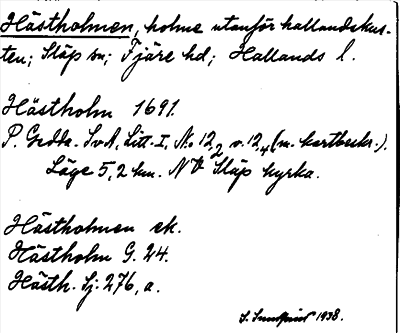 Hästholmen, holme utanför hallandskus-
ten; Släp sn; Fjäre hd; Hallands l.
Hästholm 1691.
P. Gedda. SvA, Litt. I, No 12, v. 12, (m. kartbeskr.).
Läge 5,2 km. NV Släp kyrka.
Hästholmen ek.
Hästholm G. 24.
Hästh. Sj: 276, a.
S. Sundqvist 1938.